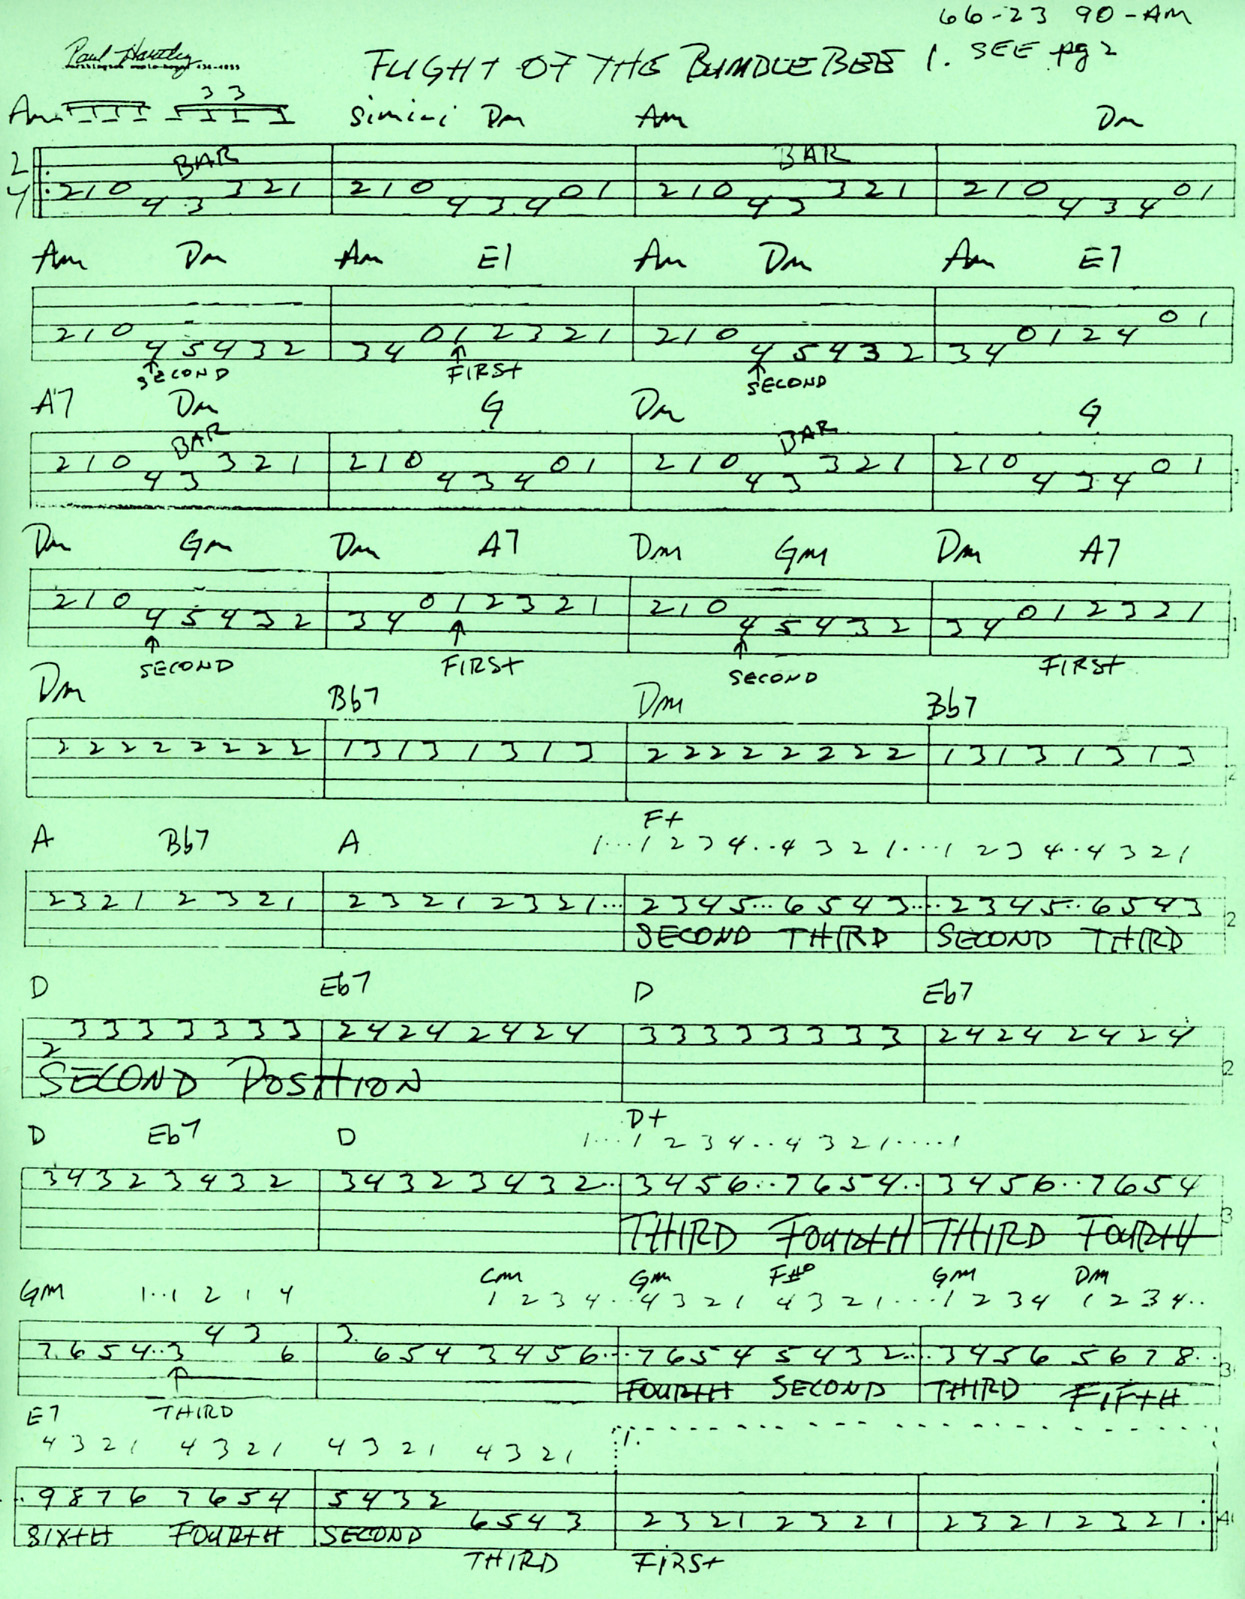 66-23 90-AM
Paul Hartley
FLIGHT OF THE BUMBLEBEE 1. SEE pg 2
3 3
Am simili Dm Am Dm
2 4 BAR BAR
2 1 0 4 3 3 2 1 2 1 0 4 3 4 0 1 2 1 0 4 3 3 2 1 2 1 0 4 3 4 0 1
Am Dm Am E7 Am Dm Am E7
2 1 0 4 5 4 3 2 3 4 0 1 2 3 2 1 2 1 0 4 5 4 3 2 3 4 0 1 2 4 0 1
SECOND FIRST SECOND
A7 Dm G Dm G
BAR BAR
2 1 0 4 3 3 2 1 2 1 0 4 3 4 0 1 2 1 0 4 3 3 2 1 2 1 0 4 3 4 0 1
Dm Gm Dm A7 Dm Gm Dm A7
2 1 0 4 5 4 3 2 3 4 0 1 2 3 2 1 2 1 0 4 5 4 3 2 3 4 0 1 2 3 2 1
SECOND FIRST SECOND FIRST
Dm Bb7 Dm Bb7
2 2 2 2 2 2 2 2 1 3 1 3 1 3 1 3 2 2 2 2 2 2 2 2 1 3 1 3 1 3 1 3
F+
A Bb7 A 1...1 2 3 4..4 3 2 1....1 2 3 4..4 3 2 1
2 3 2 1 2 3 2 1 2 3 2 1 2 3 2 1... 2 3 4 5... 6 5 4 3....2 3 4 5.. 6 5 4 3
SECOND THIRD SECOND THIRD
D Eb7 D Eb7
2 3 3 3 3 3 3 3 2 4 2 4 2 4 2 4 3 3 3 3 3 3 3 3 2 4 2 4 2 4 2 4
SECOND POSITION
D+
D Eb7 D 1...1 2 3 4..4 3 2 1.....1
3 4 3 2 3 4 3 2 3 4 3 2 3 4 3 2.. 3 4 5 6..7 6 5 4.. 3 4 5 6..7 6 5 4
THIRD FOURTH THIRD FOURTH
Cm Gm F#° Gm Dm
Gm 1..1 2 1 4 1 2 3 4..4 3 2 1 4 3 2 1....1 2 3 4 1 2 3 4..
7 6 5 4..3 4 3 6 3 6 5 4 3 4 5 6..7 6 5 4 5 4 3 2..3 4 5 6 5 6 7 8..
FOURTH SECOND THIRD FIFTH
E7 THIRD
4 3 2 1 4 3 2 1 4 3 2 1 4 3 2 1 1.
9 8 7 6 7 6 5 4 5 4 3 2 6 5 4 3 2 3 2 1 2 3 2 1 2 3 2 1 2 3 2 1
SIXTH FOURTH SECOND
THIRD FIRST